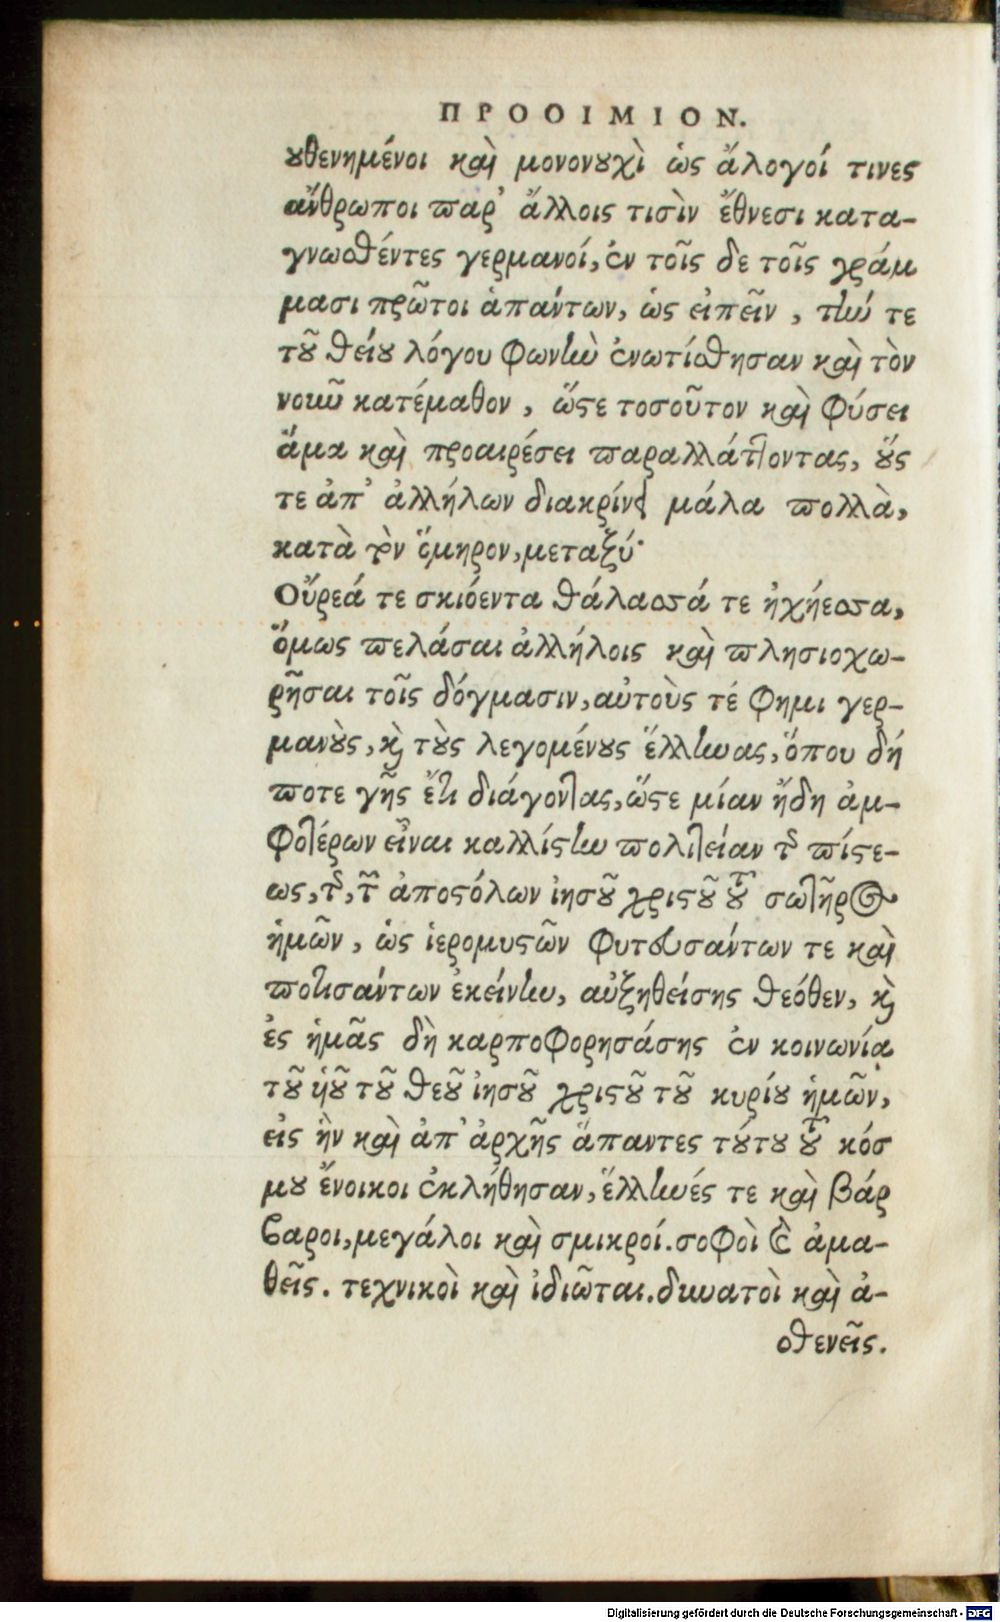 ΠΡΟΟΙΜΙΟΝ.
ουθενημένοι καὶ μονονουχὶ ὡς ἄλογοί τινες
ἄνθρωποι παρ' ἄλλοις τισὶν ἔθνεσι κατα-
γνωσθέντες γερμανοί, ἐν τοῖς δε τοῖς γράμ
μασι πρῶτοι ἁπάντων, ὡς εἰπεῖν, τήν τε
τοῦ θείου λόγου φωνὴν ἐνωτίσθησαν καὶ τὸν
νοῦν κατέμαθον, ὥστε τοσοῦτον καὶ φύσει
ἅμα καὶ προαιρέσει παραλλάττοντας, οὕς
τε ἀπ' ἀλλήλων διακρίνει μάλα πολλὰ,
κατὰ τὸν ὅμηρον, μεταξύ·
Οὔρεά τε σκιόεντα θάλασσά τε ἠχήεσσα,
ὅμως πελάσαι ἀλλήλοις καὶ πλησιοχω-
ρῆσαι τοῖς δόγμασιν, αὐτοὺς τέ φημι γερ-
μανοὺς, καὶ τοὺς λεγομένους ἕλληνας, ὅπου δή
ποτε γῆς ἔτι διάγοντας, ὥστε μίαν ἤδη ἀμ-
φοτέρων εἶναι καλλίστην πολιτείαν τῆς πίστε-
ως, τῆς, τῶν ἀποστόλων ἰησοῦ χριστοῦ τοῦ σωτῆρος
ἡμῶν, ὡς ἱερομυστῶν φυτευσάντων τε καὶ
ποτισάντων ἐκείνην, αὐξηθείσης θεόθεν, καὶ
ἐς ἡμᾶς δὴ καρποφορησάσης ἐν κοινωνίᾳ
τοῦ ὑοῦ τοῦ θεοῦ ἰησοῦ χριστοῦ τοῦ κυρίου ἡμῶν,
εἰς ἣν καὶ ἀπ' ἀρχῆς ἅπαντες τούτου τοῦ κόσ
μου ἔνοικοι ἐκλήθησαν, ἕλληνές τε καὶ βάρ
βαροι, μεγάλοι καὶ σμικροί. σοφοὶ καὶ ἀμα-
θεῖς. τεχνικοὶ καὶ ἰδιῶται. δυνατοὶ καὶ ἀ-
σθενεῖς.
Digitalisierung gefördert durch die Deutsche Forschungsgemeinschaft - DFG